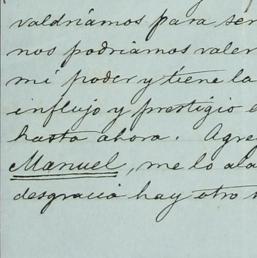 valdríamos para ser
nos podríamos valer
mi poder y tiene la
influjo y prestigio e
hasta ahora. Agre
Manuel, me lo ala
desgracia hay otro